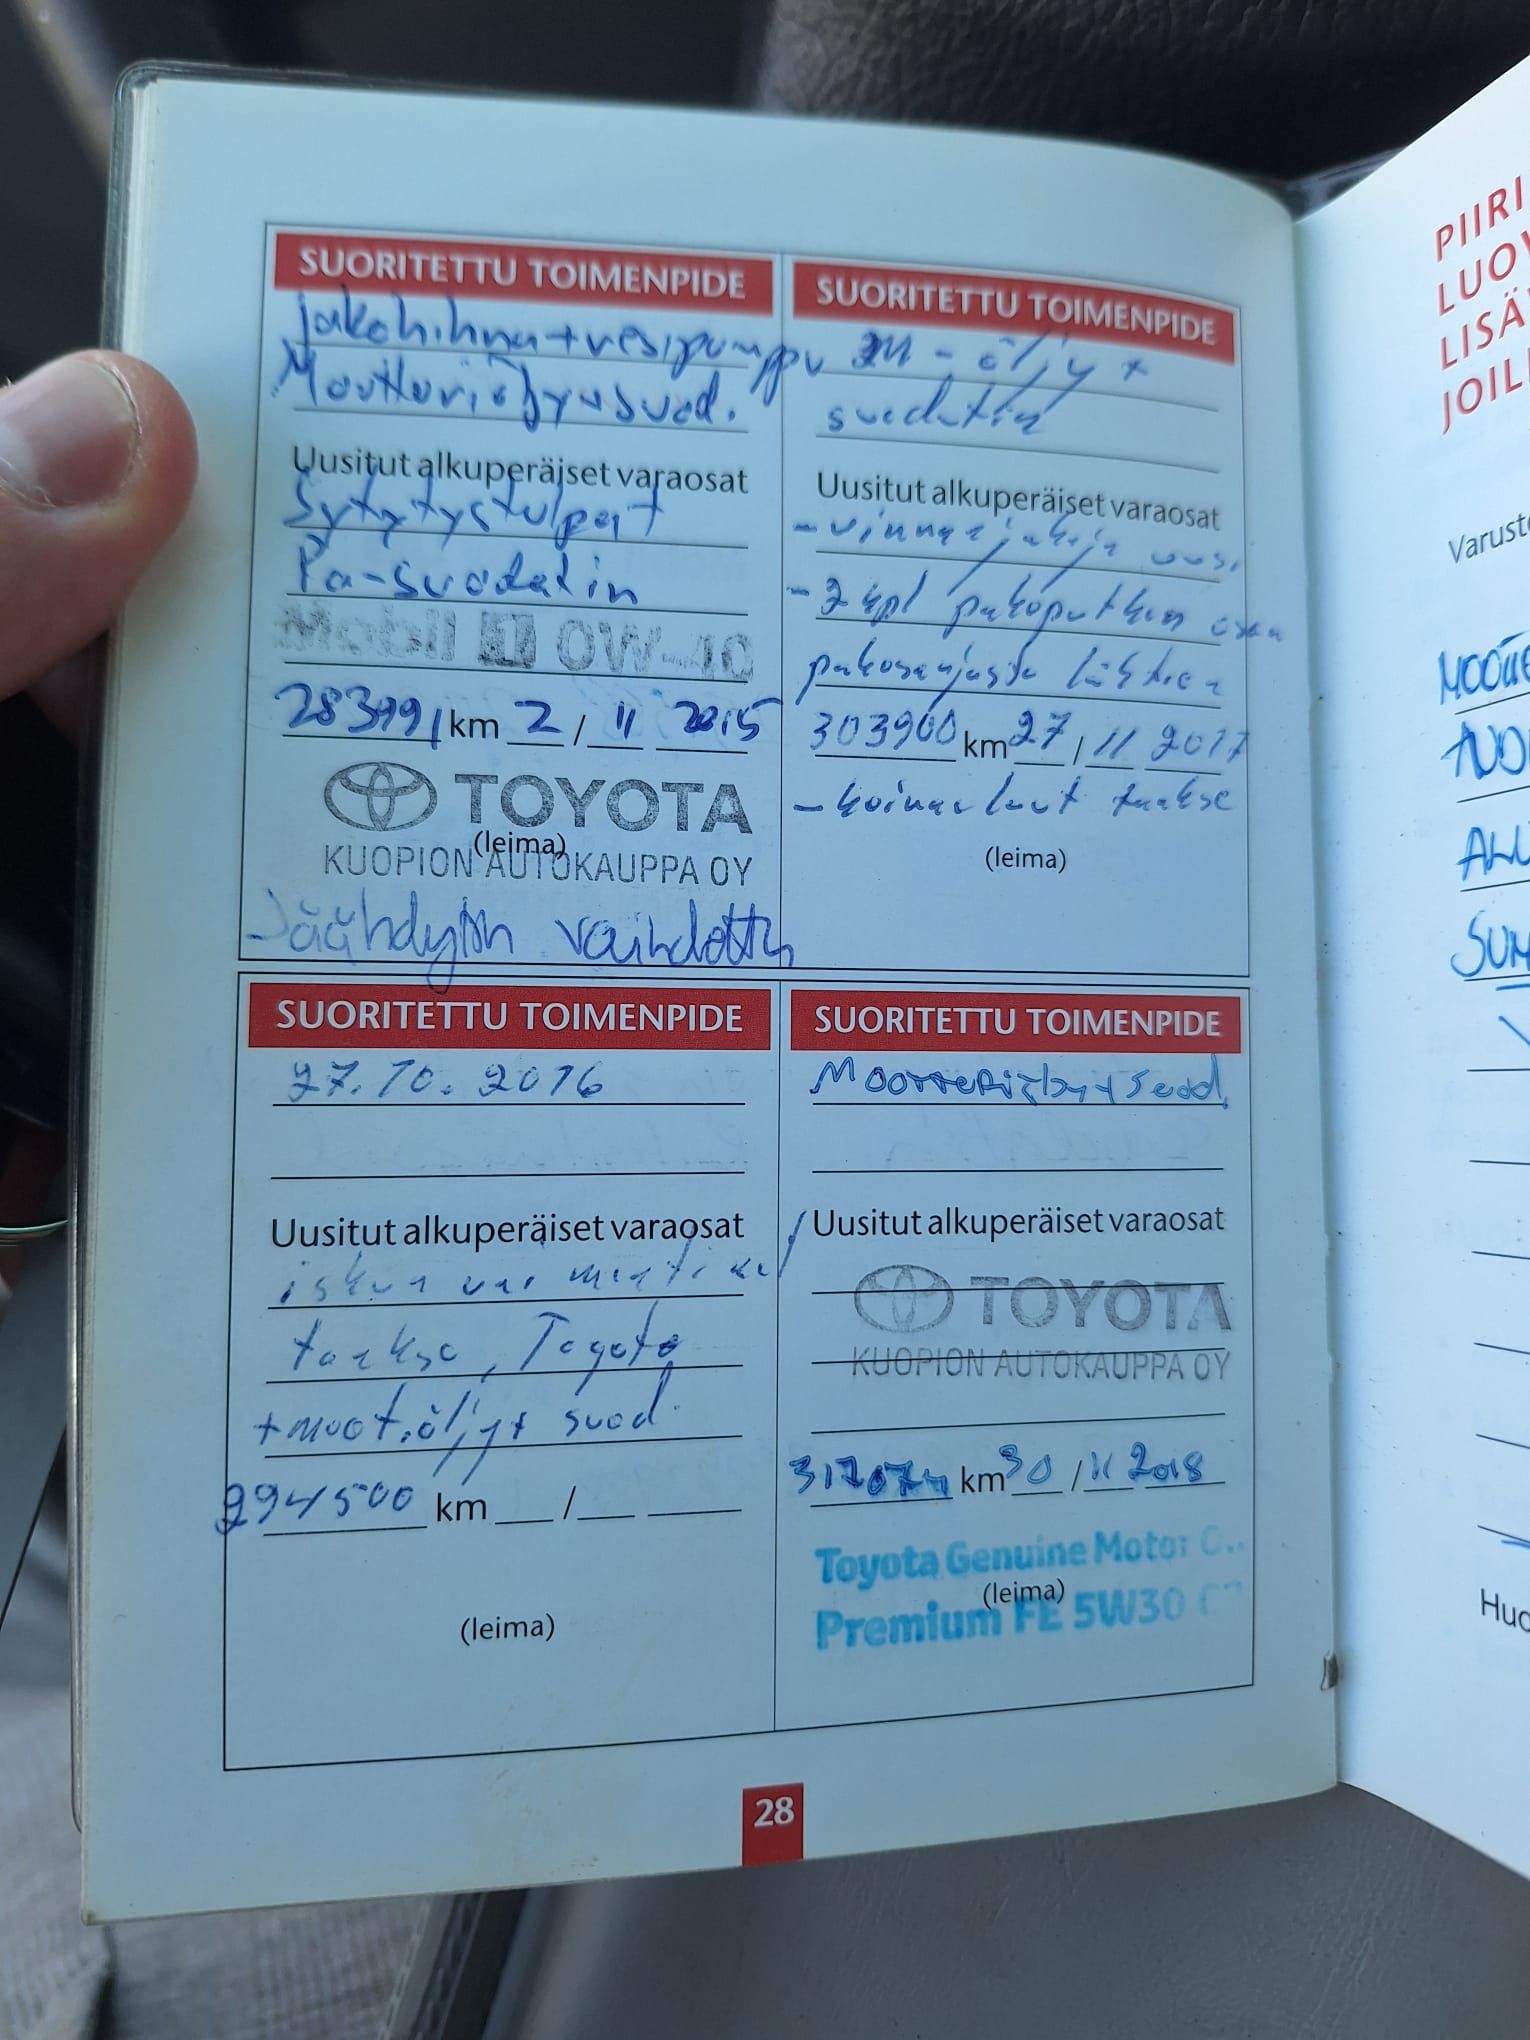 SUORITETTU TOIMENPIDE
Jakohihna+vesipumppu
Moottoriöljy+suod.
Uusitut alkuperäiset varaosat
Sytytystulpat
Pa-suodatin
Mobil 1 0W-40
283991 km 2 / 11 2015
TOYOTA
(leima)
KUOPION AUTOKAUPPA OY
Jäähdytin vaihdettu
SUORITETTU TOIMENPIDE
- öljy +
suodatin
Uusitut alkuperäiset varaosat
- virranjakaja uusi
- 2 kpl pakoputken osaa
pakosarjasta lähtien
303900 km 27 / 11 2017
- taakse
(leima)
SUORITETTU TOIMENPIDE
27.10.2016
Uusitut alkuperäiset varaosat
iskun
taakse, Toyota
+moot.öljy+ suod.
294500 km / 
(leima)
SUORITETTU TOIMENPIDE
Moottoriöljy+suod.
Uusitut alkuperäiset varaosat
TOYOTA
KUOPION AUTOKAUPPA OY
317074 km 30 / 11 2018
Toyota Genuine Motor
(leima)
Premium FE 5W30
28
PIIRI
LUOV
LISÄ
JOIL
Varuste
MOOTTE
ALU
SUM
Huo